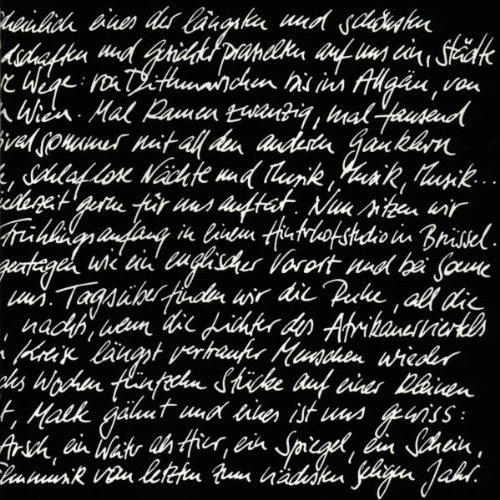 heinlich eines der längsten und schönsten
dschaften und Gesichter prasselten auf uns ein, Städte
e Wege: von Dithmarschen bis ins Allgäu, von
n Wien. Mal kamen zwanzig, mal tausend
ivalsommer mit all den anderen Gauklern
, schlaflose Nächte und Musik, Musik, Musik...
ederzeit gerne für uns auftat. Nun sitzen wir
Frühlingsanfang in einem Hinterhofstudio in Brüssel.
getagen wie ein englischer Vorort und bei Sonne
uns. Tagsüber finden wir die Ruhe, all die
, nachts, wenn die Lichter des Afrikanerviertels
n Kreise längst vertrauter Menschen wieder
chs Wochen fünfzehn Stücke auf einer kleinen
t, Maik gähnt und eines ist uns gewiss:
Arsch, ein Weiter als Hier, ein Spiegel, ein Schein,
lmmusik vom letzten zum nächsten seligen Jahr.